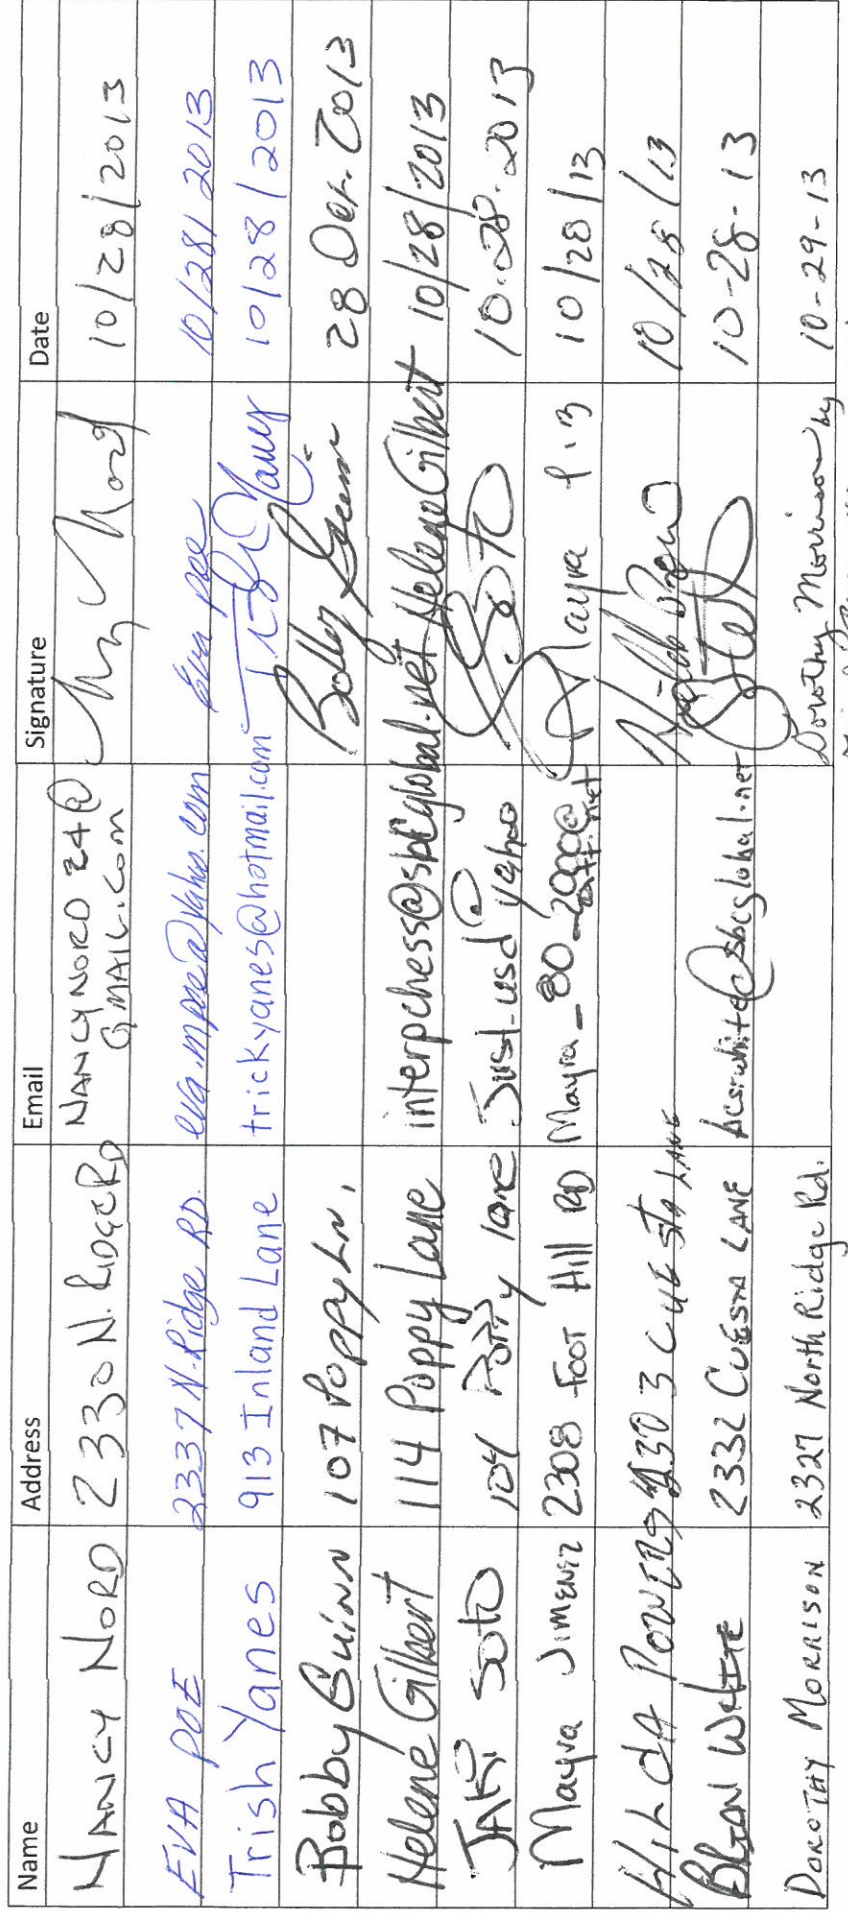 Name Address Email Signature Date
NANCY NORD 2330 N. RIDGE RD NANCYNORD24@ 10/28/2013
GMAIL.COM
EVA POE 2337 N. Ridge RD. eva.mpoe@yahoo.com Eva Poe 10/28/2013
Trish Yanes 913 Inland Lane trickyanes@hotmail.com 10/28/2013
Bobby Guinn 107 Poppy Ln. 28 2013
Helene Gilbert 114 Poppy Lane interpchess@sbcglobal.net Helene Gilbert 10/28/2013
JAKI Soto 104 Poppy lane Just-usd@yahoo 10.28.2013
Mayra JIMENEZ 2308 FOOT Hill RD Mayra_80_2000@ Mayra 10/28/13
att.net
HILDA POWERS 2303 CUESTA LANE 10/28/13
BRIAN WHITE 2332 CUESTA LANE @sbcglobal.net 10-28-13
DOROTHY MORRISON 2327 North Ridge Rd. Dorothy Morrison by 10-29-13